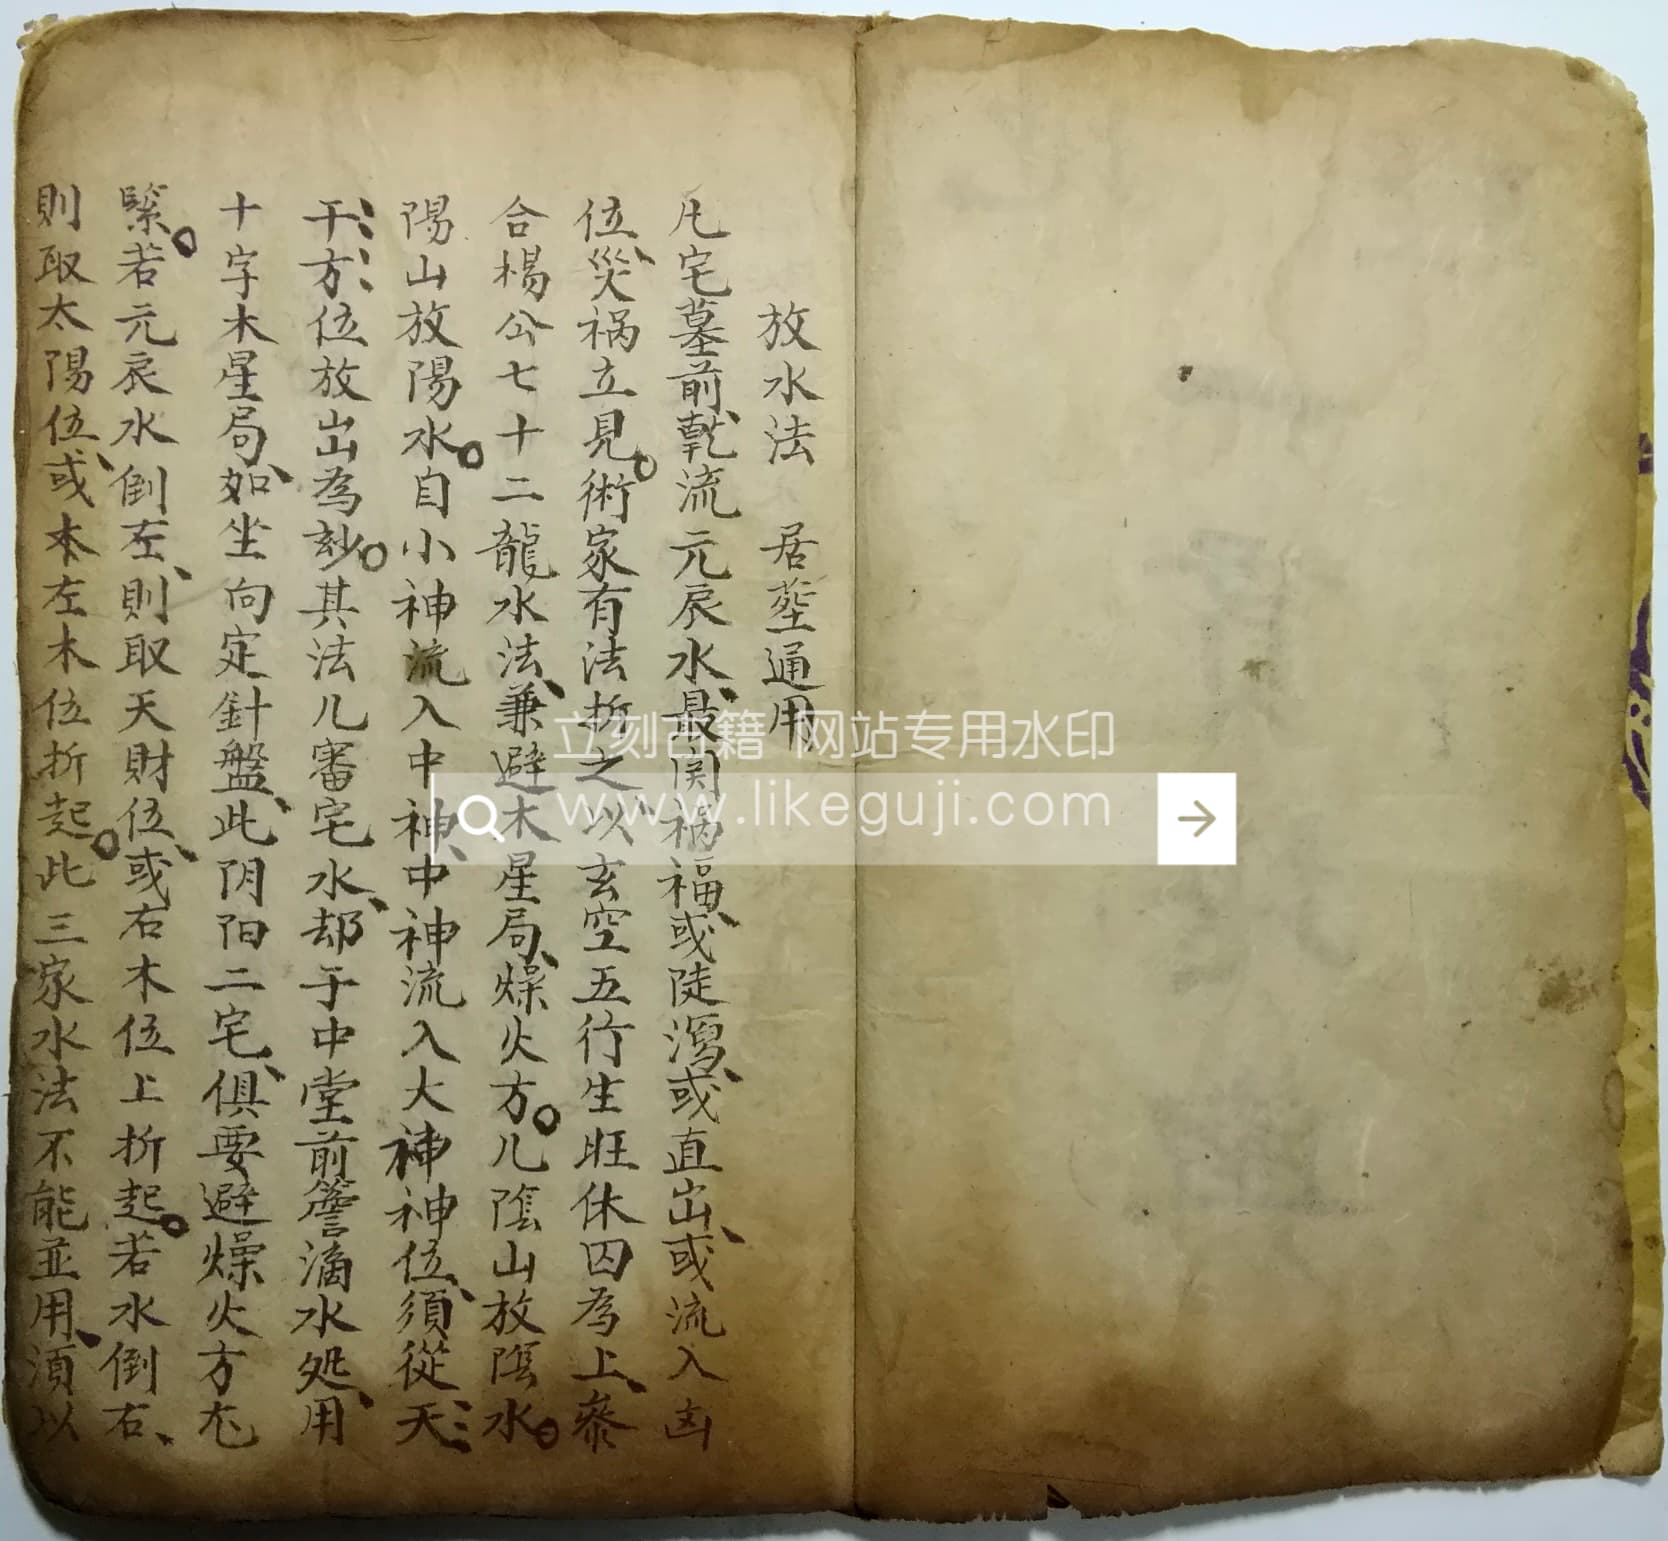 放水法　居塟通用
凡宅墓前、乾流元辰水、最関禍福、或陡瀉、或直出、或流入凶
位、災祸立見。術家有法折之、以玄空五行生旺休囚為上、叅
合楊公七十二龍水法、兼避木星局、燥火方。凡陰山放陰水。
陽山放陽水。自小神流入中神、中神流入大神神位、須從天
干方位放出為玅。其法凡審宅水、却于中堂前簷滴水処、用
十字木星局、如坐向定針盤、此阴阳二宅、俱要避燥火方尤
緊。若元辰水倒左、則取天財位、或右木位上折起。若水倒右、
則取太陽位、或本左木位折起。此三家水法不能並用、須以
立刻古籍 网站专用水印
www.likeguji.com